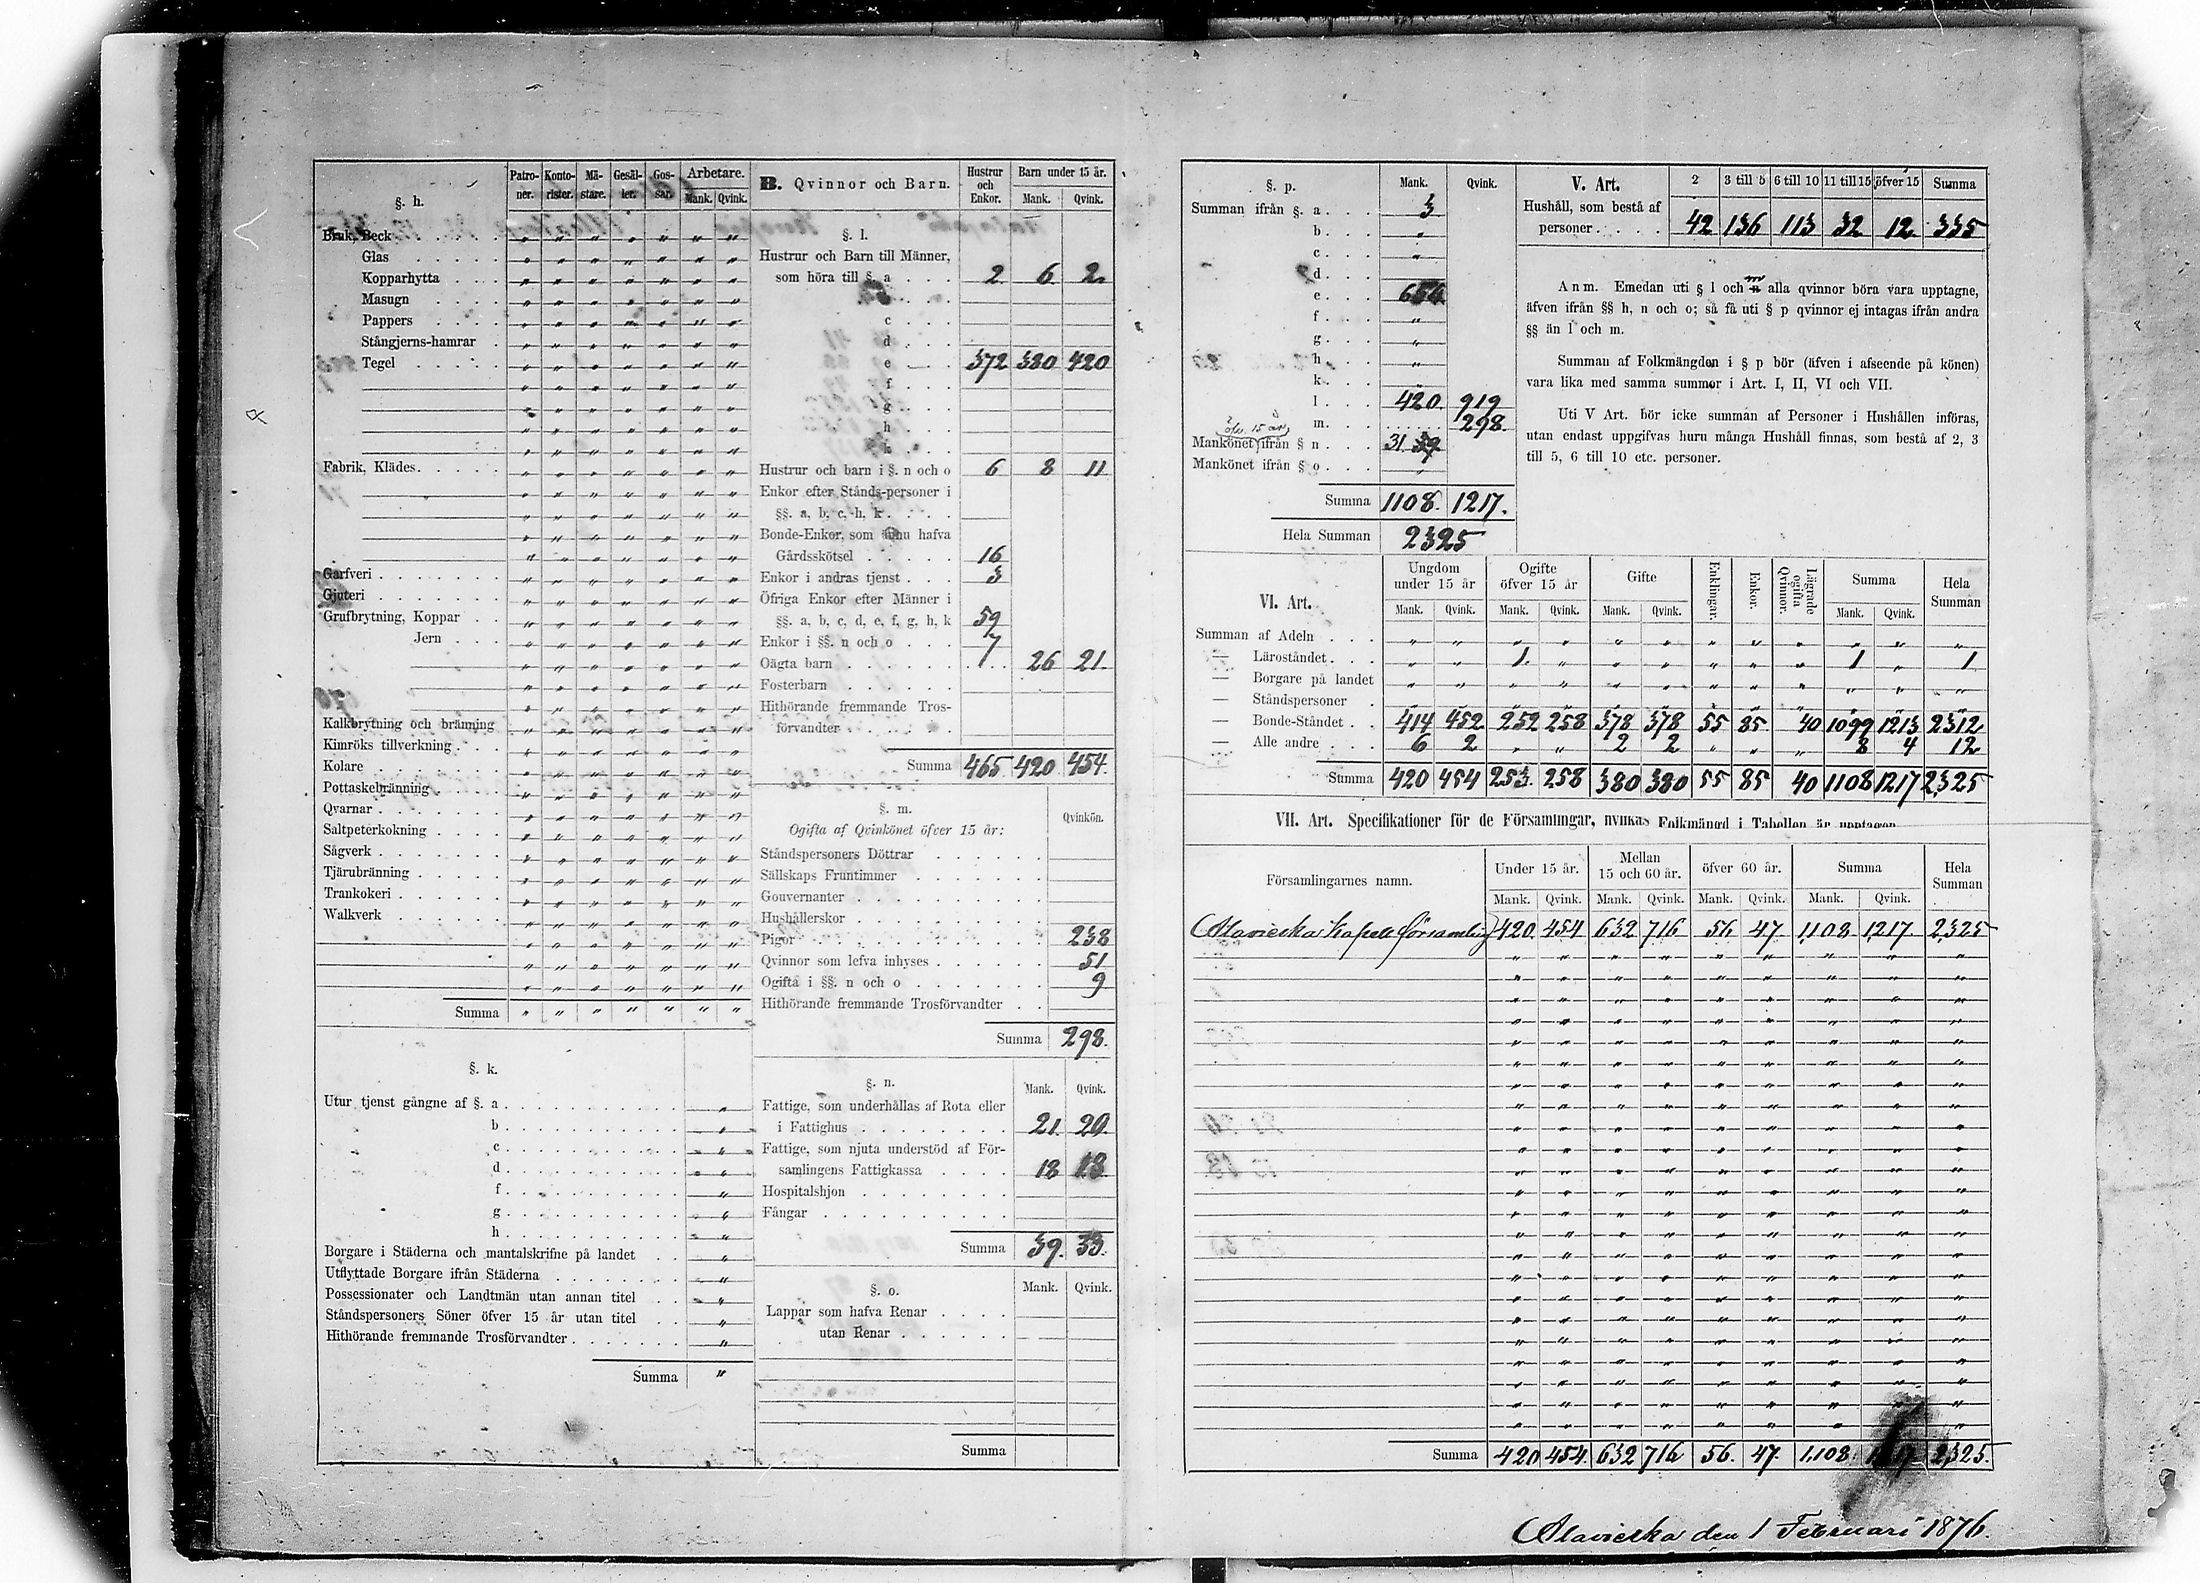 §. h.
Patroner. Kontorister. Mästare. Gesäller. Gossar. Arbetare.
Mank. Qvink.
Bruk, Beck " " " " " " "
Glas " " " " " " "
Kopparhytta " " " " " " "
Masugn " " " " " " "
Pappers " " " " " " "
Stångjerns-hamrar " " " " " " "
Tegel " " " " " " "
Fabrik, Klädes " " " " " " "
Garfveri " " " " " " "
Gjuteri " " " " " " "
Grufbrytning, Koppar " " " " " " "
Jern " " " " " " "
Kalkbrytning och bränning " " " " " " "
Kimröks tillverkning " " " " " " "
Kolare " " " " " " "
Pottaskebränning " " " " " " "
Qvarnar " " " " " " "
Saltpeterkokning " " " " " " "
Sågverk " " " " " " "
Tjärubränning " " " " " " "
Trankokeri " " " " " " "
Walkverk " " " " " " "
Summa " " " " " " "
§. k.
Utur tjenst gångne af §. a "
b "
c "
d "
f "
g "
h "
Borgare i Städerna och mantalskrifne på landet "
Utflyttade Borgare ifrån Städerna "
Possessionater och Landtmän utan annan titel "
Ståndspersoners Söner öfver 15 år utan titel "
Hithörande fremmande Trosförvandter "
Summa "
B. Qvinnor och Barn.
Hustrur och Enkor. Barn under 15 år.
Mank. Qvink.
§. l.
Hustrur och Barn till Männer,
som höra till §. a 2 6 2
c
d
e 372 380 420
f
g
h
k
Hustrur och barn i §. n och o 6 8 11
Enkor efter Stånds-personer i
§§. a, b, c, h, k
Bonde-Enkor, som ännu hafva
Gårdsskötsel 16
Enkor i andras tjenst 3
Öfriga Enkor efter Männer i
§§. a, b, c, d, e, f, g, h, k 59
Enkor i §§. n och o 7
Oägta barn 26 21
Fosterbarn
Hithörande fremmande Trosförvandter
Summa 465 420 454
§. m.
Ogifta af Qvinkönet öfver 15 år: Qvinkön.
Ståndspersoners Döttrar
Sällskaps Fruntimmer
Gouvernanter
Hushållerskor
Pigor 238
Qvinnor som lefva inhyses 51
Ogifta i §§. n och o 9
Hithörande fremmande Trosförvandter
Summa 298.
§. n. Mank. Qvink.
Fattige, som underhållas af Rota eller
i Fattighus 21. 20.
Fattige, som njuta understöd af Församlingens Fattigkassa 18 13
Hospitalshjon
Fångar
Summa 39. 33.
§. o. Mank. Qvink.
Lappar som hafva Renar
utan Renar
Summa
§. p. Mank. Qvink.
Summan ifrån §. a 3
b "
c "
d
e 654
f "
g "
h "
k
l 420. 919
m 298.
öfv. 15 år
Mankönet ifrån § n 31 39
Mankönet ifrån § o
Summa 1108. 1217.
Hela Summan 2325
V. Art. 2 3 till 5 6 till 10 11 till 15 öfver 15 Summa
Hushåll, som bestå af
personer 42 136 113 32 12. 335
Anm. Emedan uti § l och m alla qvinnor böra vara upptagne,
äfven ifrån §§ h, n och o; så få uti § p qvinnor ej intagas ifrån andra
§§ än l och m.
Summan af Folkmängden i § p bör (äfven i afseende på könen)
vara lika med samma summor i Art. I, II, VI och VII.
Uti V Art. bör icke summan af Personer i Hushållen införas,
utan endast uppgifvas huru många Hushåll finnas, som bestå af 2, 3
till 5, 6 till 10 etc. personer.
VI. Art.
Ungdom under 15 år Ogifte öfver 15 år Gifte Enklingar. Enkor. Lägrade ogifta Qvinnor. Summa Hela Summan
Mank. Qvink. Mank. Qvink. Mank. Qvink. Mank. Qvink.
Summan af Adeln " " " " " " " " " " " "
— Läroståndet " " 1. " " " " " " 1 " 1
— Borgare på landet " " " " " " " " " " " "
— Ståndspersoner " " " " " " " " " " " "
— Bonde-Ståndet 414 452 252 258 378 378 55 85 40 1099 1213 2312
— Alle andre 6 2 " " 2 2 " " " 8 4 12
Summa 420 454 253. 258 380 380 55 85 40 1108 1217 2325
VII. Art. Specifikationer för de Församlingar, hvilkas Folkmängd i Tabellen är upptagen.
Församlingarnes namn. Under 15 år. Mellan 15 och 60 år. öfver 60 år. Summa Hela Summan
Mank. Qvink. Mank. Qvink. Mank. Qvink. Mank. Qvink.
Alavieska kapellförsamling 420. 454 632 716 56 47. 1108 1217. 2325
Summa 420 454. 632 716 56. 47. 1,108 1217. 2325.
Alavieska den 1 Februari 1876.